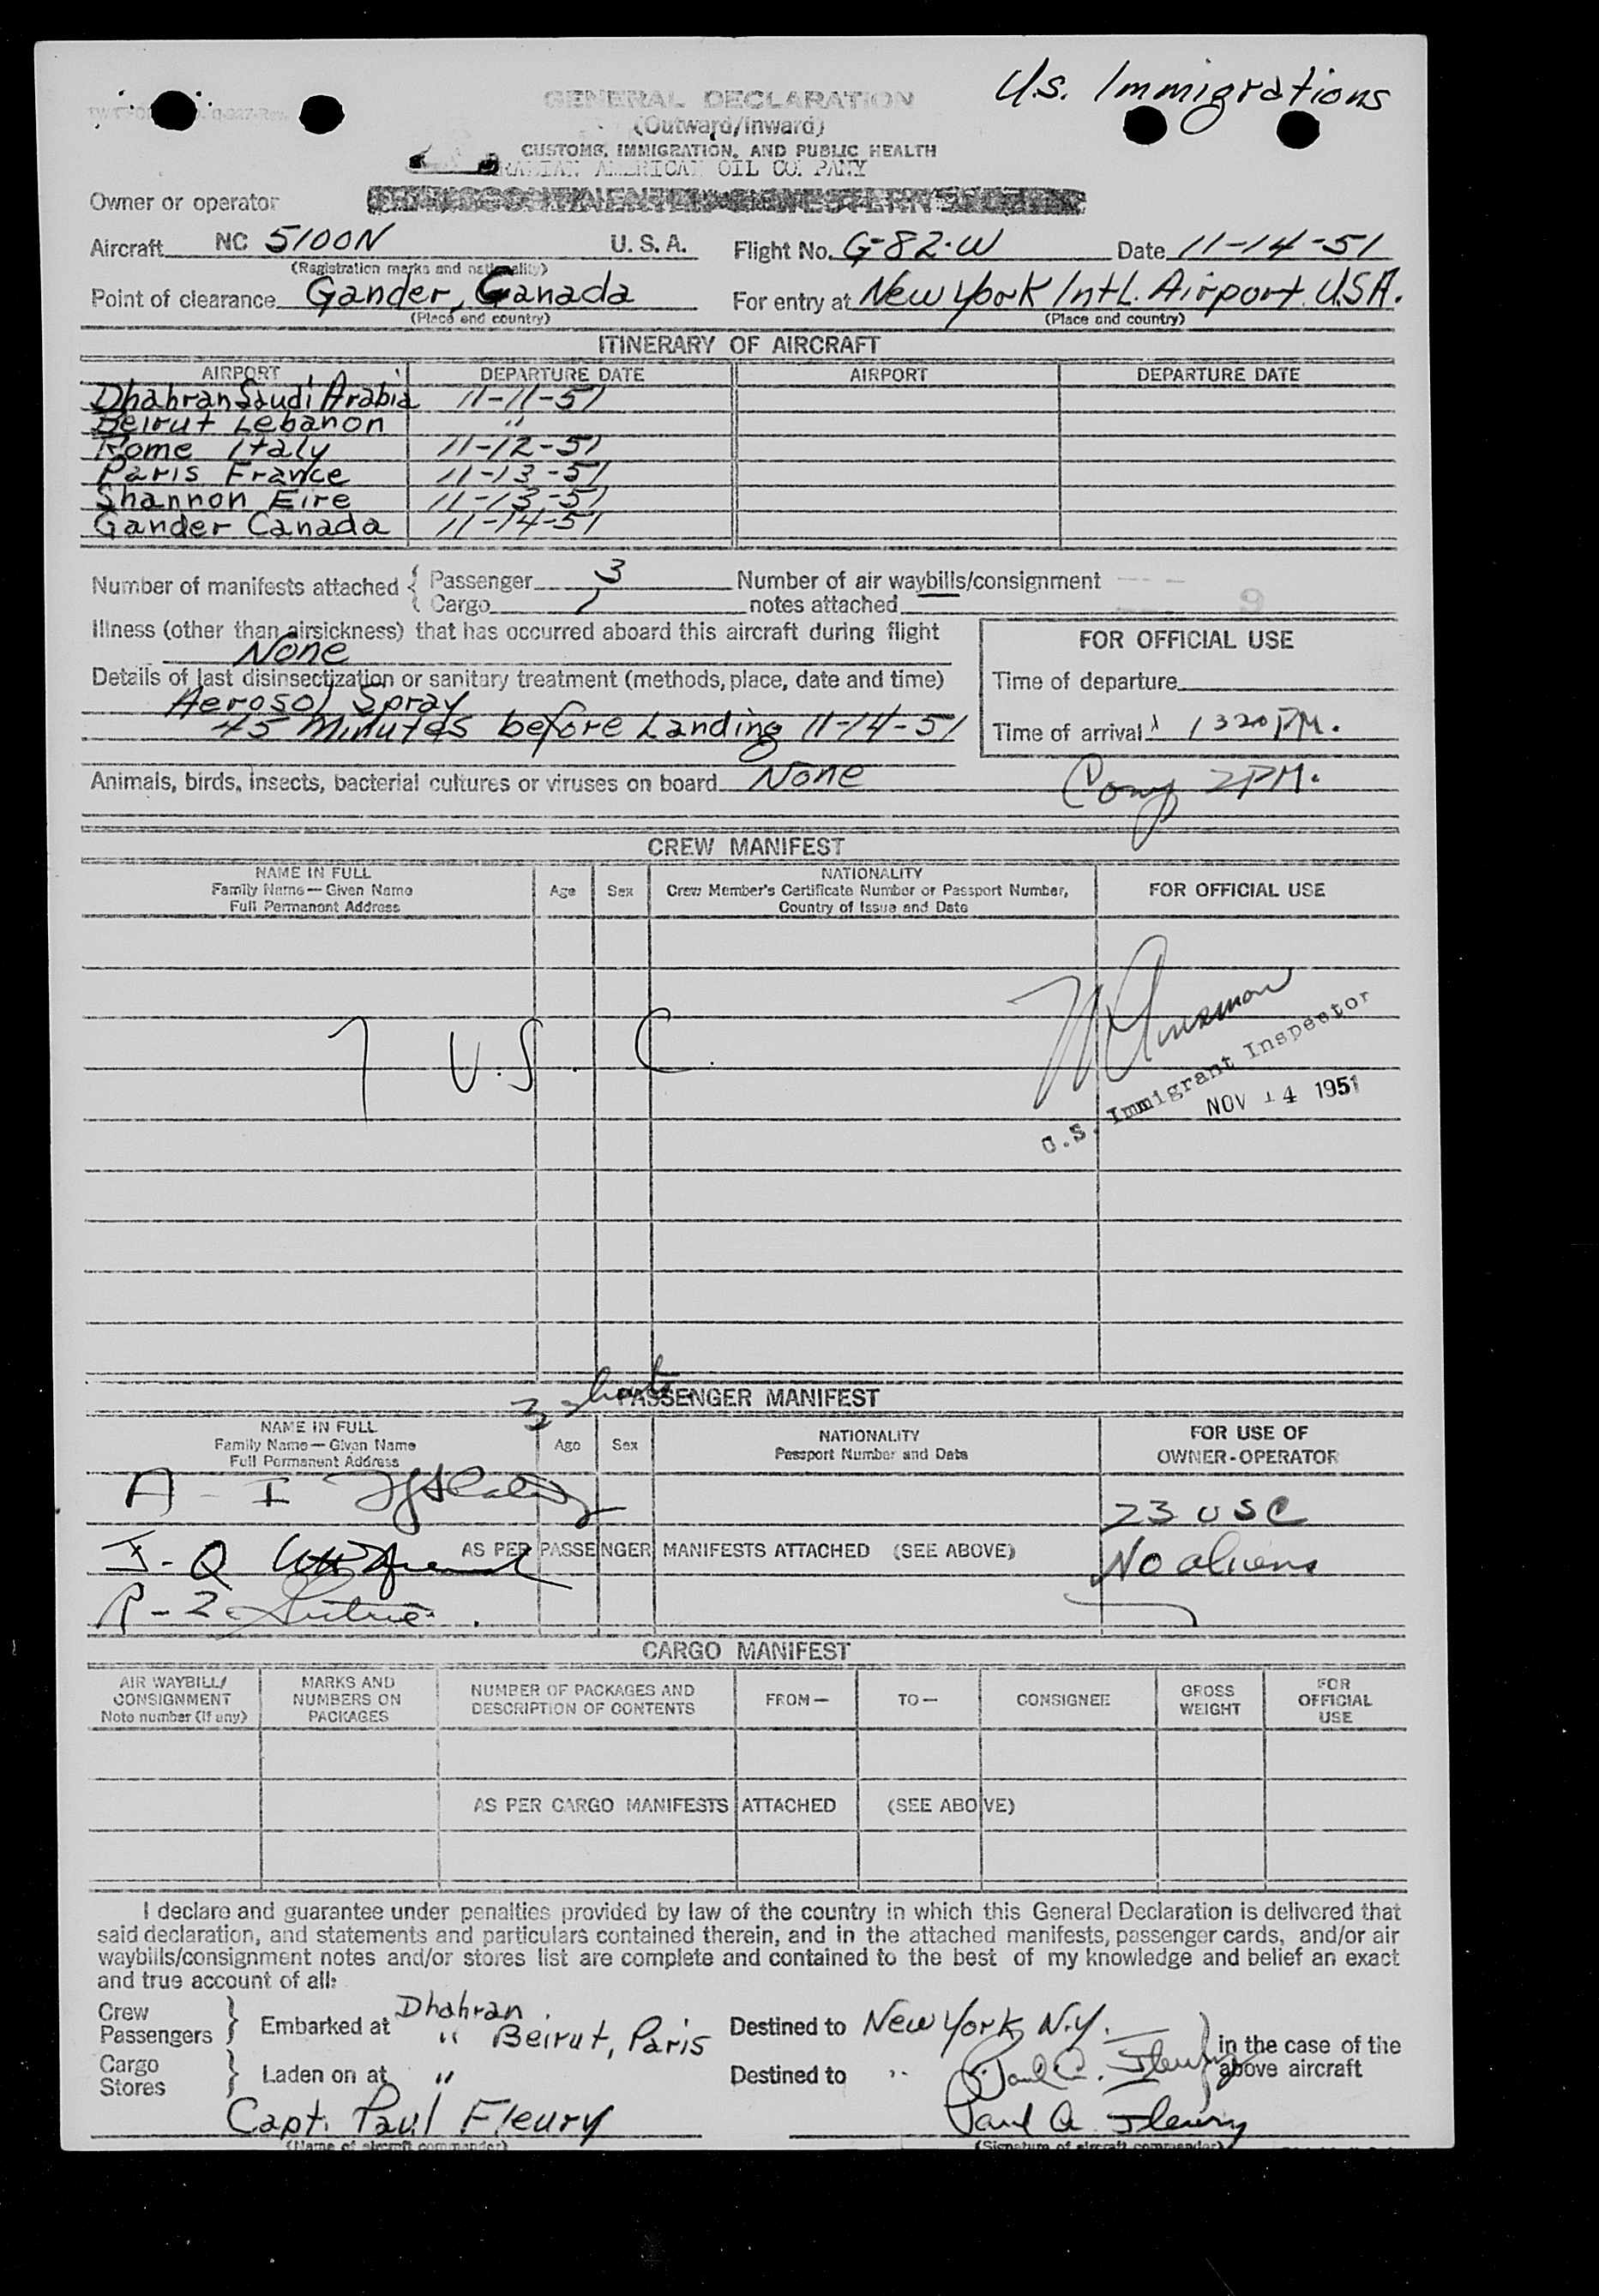 U.S. Immigrations
GENERAL DECLARATION
(Outward/Inward)
CUSTOMS, IMMIGRATION, AND PUBLIC HEALTH
ARABIAN AMERICAN OIL COMPANY
Owner or operator
Aircraft NC 5100N U.S.A. Flight No. G-82-W Date 11-14-51
(Registration marks and nationality)
Point of clearance Gander, Canada For entry at New York Intl. Airport U.S.A.
(Place and country) (Place and country)
ITINERARY OF AIRCRAFT
AIRPORT DEPARTURE DATE AIRPORT DEPARTURE DATE
Dhahran Saudi Arabia 11-11-51
Beirut Lebanon "
Rome Italy 11-12-51
Paris France 11-13-51
Shannon Eire 11-13-51
Gander Canada 11-14-51
Number of manifests attached { Passenger 3 Number of air waybills/consignment
Cargo 1 notes attached
Illness (other than airsickness) that has occurred aboard this aircraft during flight
None
FOR OFFICIAL USE
Details of last disinsectization or sanitary treatment (methods, place, date and time)
Aerosol Spray
45 Minutes before Landing 11-14-51
Time of departure
Time of arrival 1320 PM.
Animals, birds, insects, bacterial cultures or viruses on board None
2PM.
CREW MANIFEST
NAME IN FULL
Family Name—Given Name
Full Permanent Address
Age Sex
NATIONALITY
Crew Member's Certificate Number or Passport Number,
Country of Issue and Date
FOR OFFICIAL USE
7 U.S. C.
U.S. Immigrant Inspector
NOV 14 1951
PASSENGER MANIFEST
NAME IN FULL
Family Name—Given Name
Full Permanent Address
Age Sex
NATIONALITY
Passport Number and Date
FOR USE OF
OWNER-OPERATOR
A - I
23 USC
I - Q
AS PER PASSENGER MANIFESTS ATTACHED (SEE ABOVE)
No aliens
R - Z
CARGO MANIFEST
AIR WAYBILL/
CONSIGNMENT
Note number (if any)
MARKS AND
NUMBERS ON
PACKAGES
NUMBER OF PACKAGES AND
DESCRIPTION OF CONTENTS
FROM— TO— CONSIGNEE
GROSS
WEIGHT
FOR
OFFICIAL
USE
AS PER CARGO MANIFESTS ATTACHED (SEE ABOVE)
I declare and guarantee under penalties provided by law of the country in which this General Declaration is delivered that
said declaration, and statements and particulars contained therein, and in the attached manifests, passenger cards, and/or air
waybills/consignment notes and/or stores list are complete and contained to the best of my knowledge and belief an exact
and true account of all:
Crew
Passengers } Embarked at Dhahran
" Beirut, Paris Destined to New York, N.Y.
in the case of the
above aircraft
Cargo
Stores } Laden on at " Destined to " Paul A. Fleury
Capt. Paul Fleury Paul A. Fleury
(Name of aircraft commander) (Signature of aircraft commander)